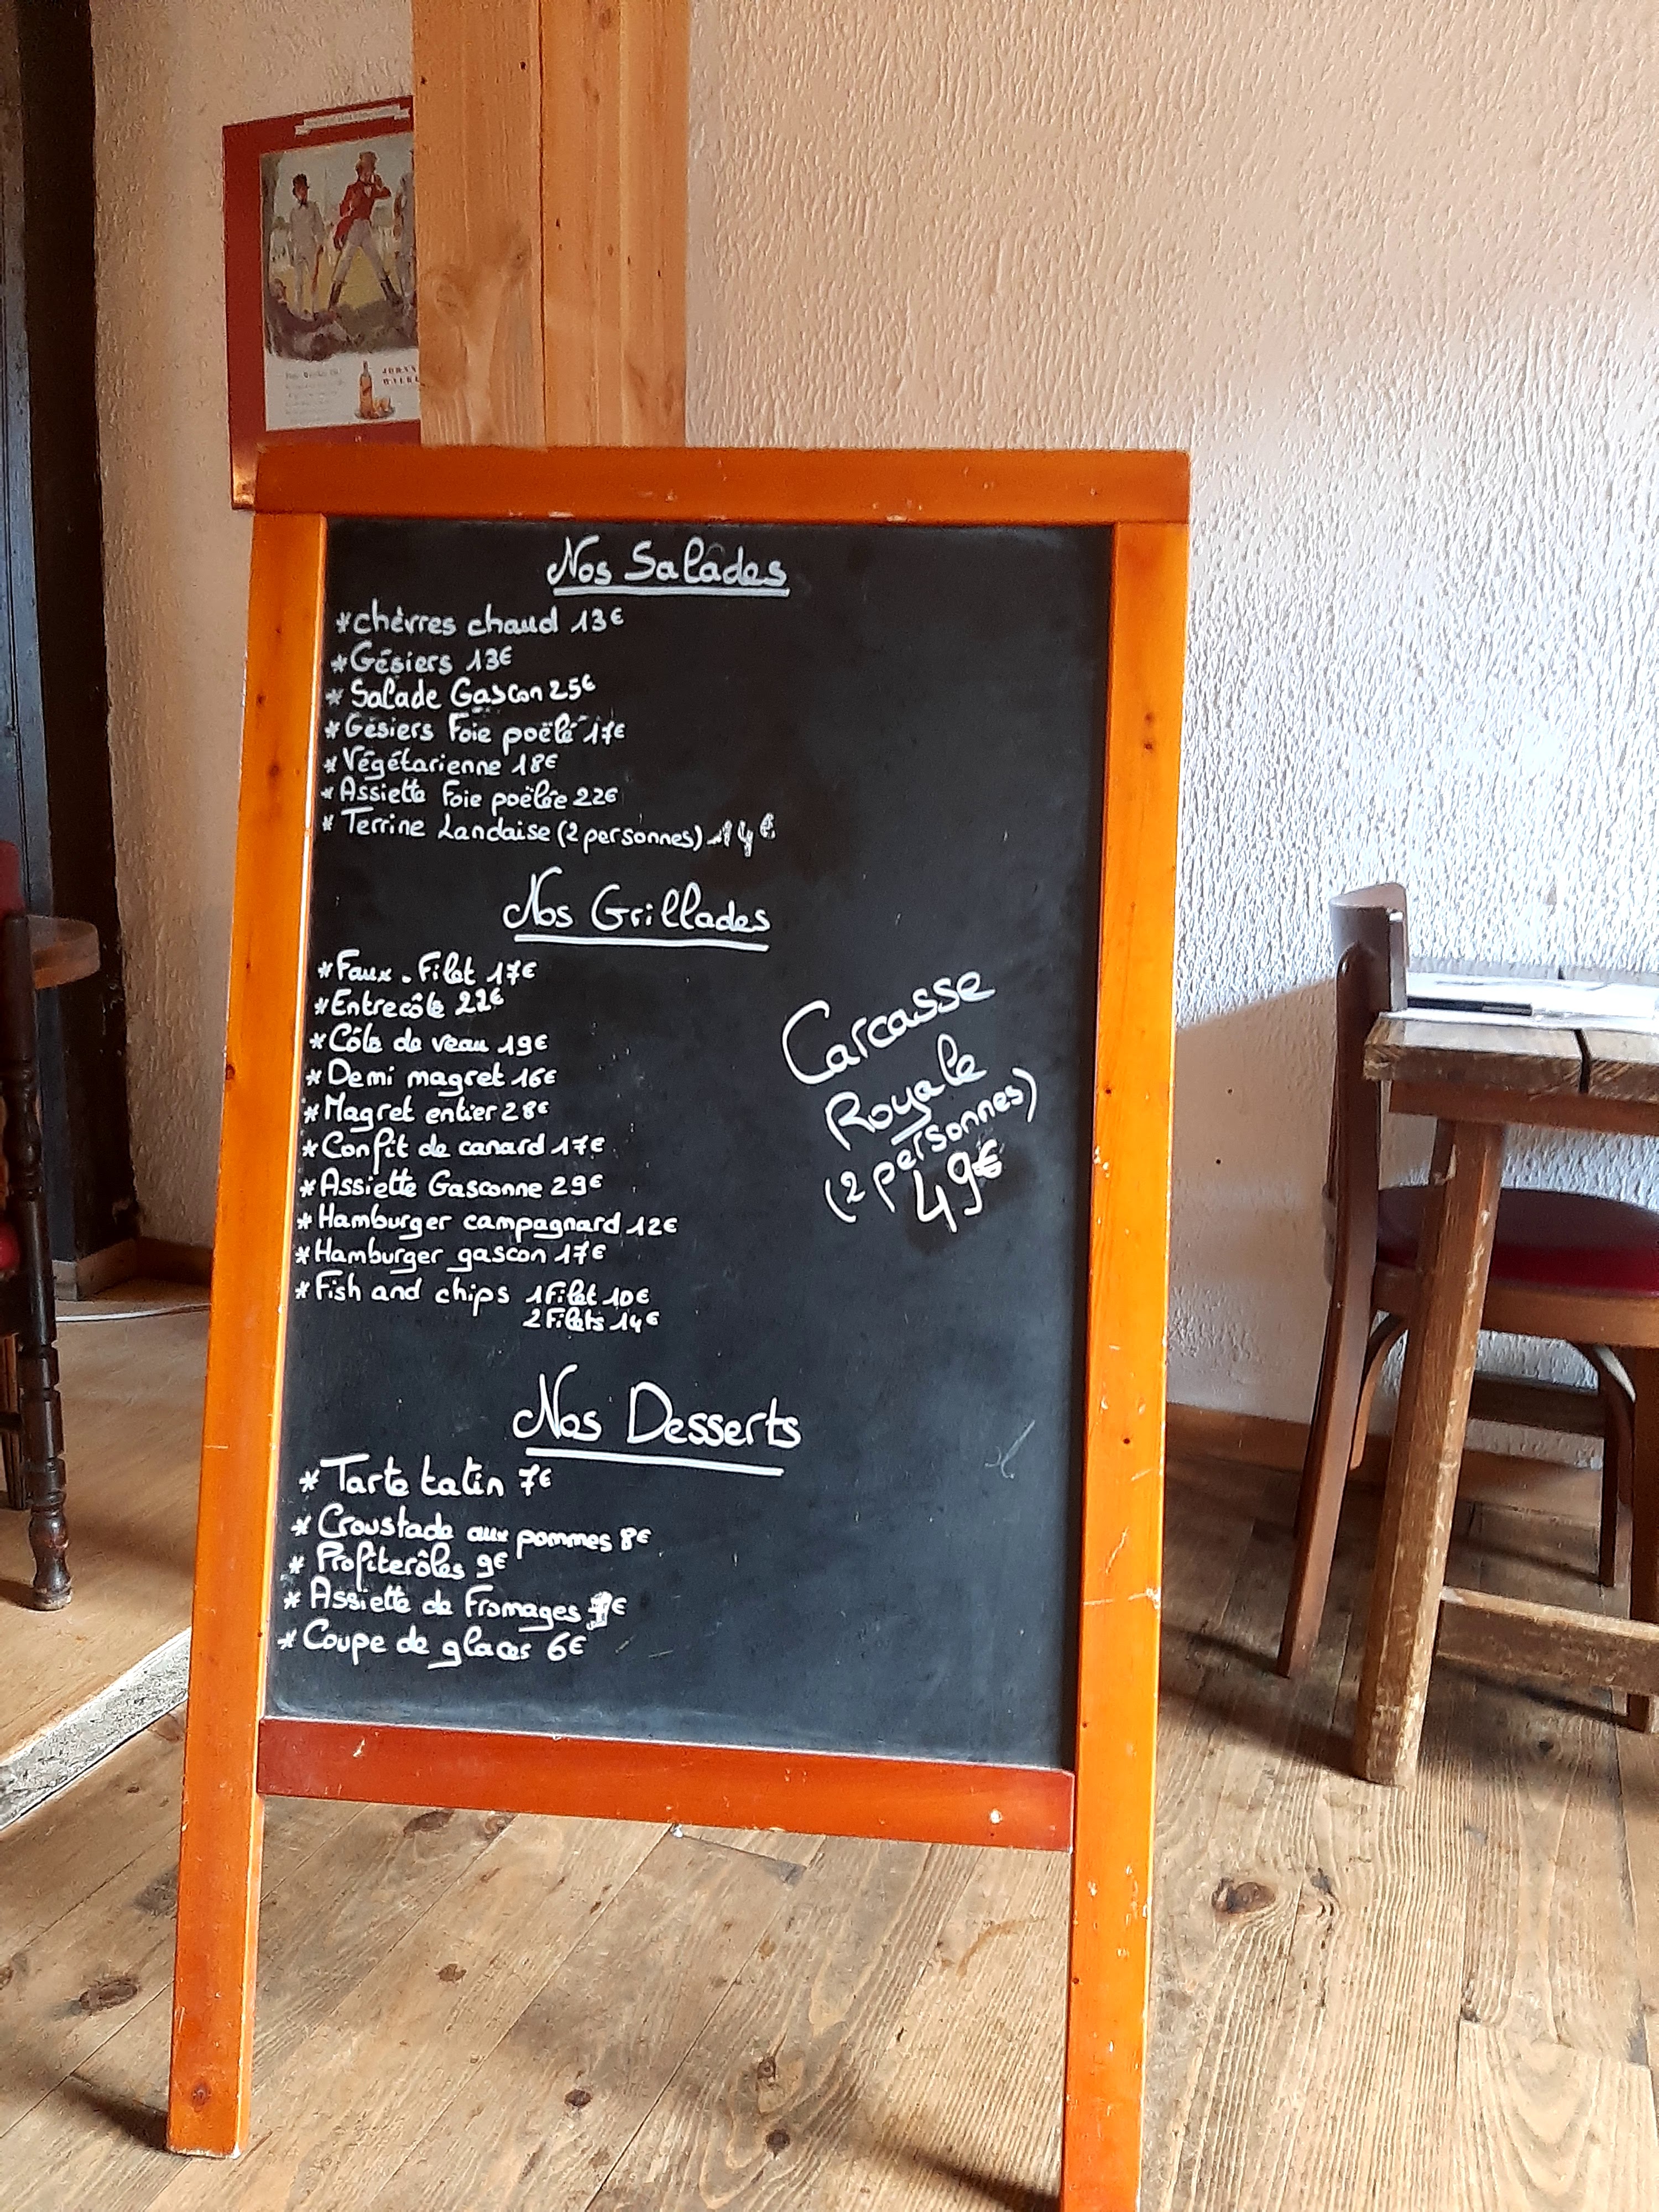 JOHNN
WALKE
Nos Salades
*chèvres chaud 13€
*Gésiers 13€
*Salade Gascon 25€
*Gésiers Foie poëlé 17€
*Végétarienne 18€
*Assiette Foie poëlée 22€
*Terrine Landaise (2 personnes) 14€
Nos Grillades
*Faux-Filet 17€
*Entrecôte 22€
*Côte de veau 19€
*Demi magret 16€
*Magret entier 28€
*Confit de canard 17€
*Assiette Gasconne 29€
*Hamburger campagnard 12€
*Hamburger gascon 17€
*Fish and chips 1 Filet 10€
2 Filets 14€
Carcasse
Royale
(2 personnes)
49€
Nos Desserts
*Tarte tatin 7€
*Croustade aux pommes 8€
*Profiterôles 9€
*Assiette de Fromages
*Coupe de glaces 6€